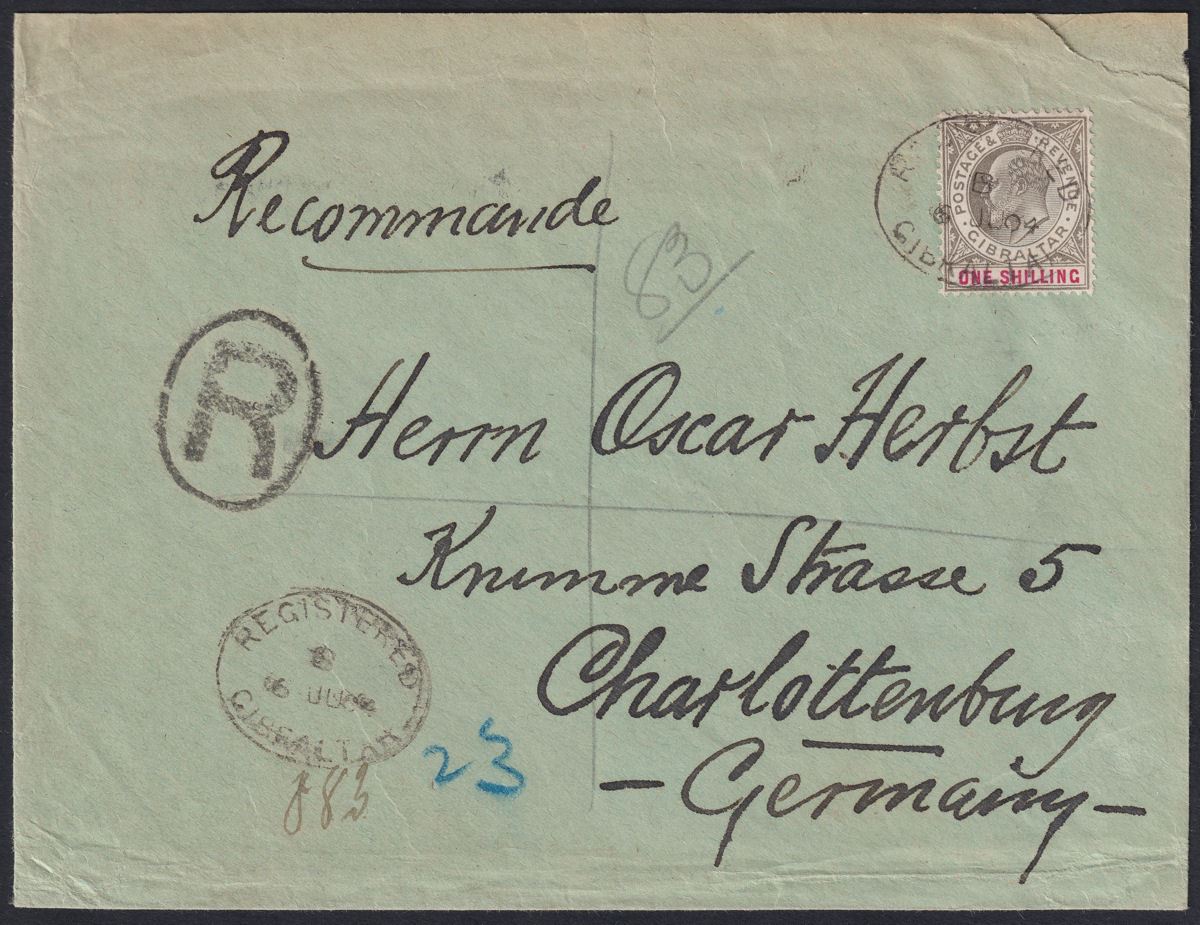 Recommande
83
POSTAGE & REVENUE
GIBRALTAR
ONE SHILLING
B
6 JU 04
GIBRALTAR
R
Herrn Oscar Herbst
Krumme Strasse 5
Charlottenburg
— Germany —
REGISTERED
B
6 JU 04
GIBRALTAR
883
23